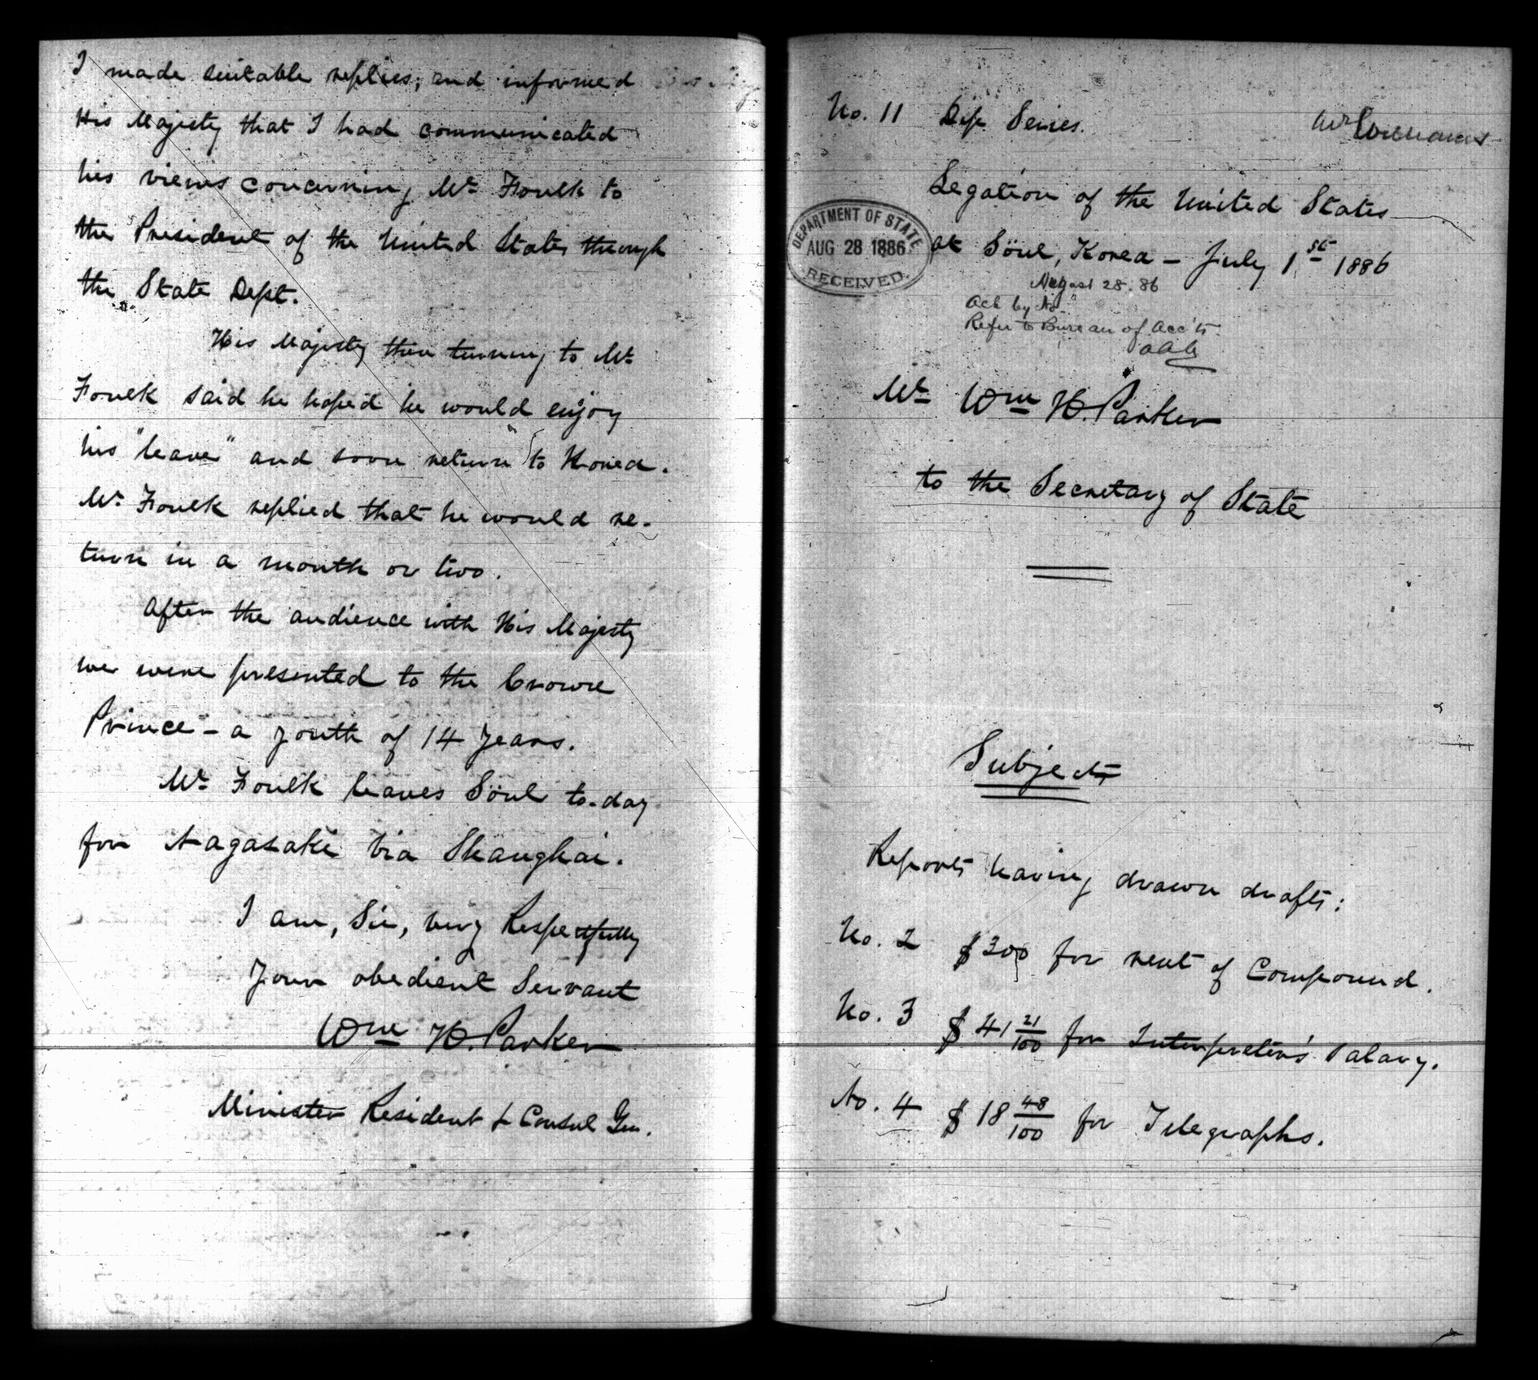 I made suitable replies, and informed
His Majesty that I had communicated
his views concerning Mr. Foulk to
the President of the United States through
the State Dept.
His Majesty then turning to Mr.
Foulk said he hoped he would enjoy
his "leave" and soon return to Korea.
Mr. Foulk replied that he would re-
turn in a month or two.
After the audience with His Majesty
we were presented to the Crown
Prince - a youth of 14 years.
Mr. Foulk leaves Söul to-day
for Nagasaki via Shanghai.
I am, Sir, very Respectfully
Your obedient Servant
Wm H. Parker
Minister Resident & Consul Gen.
No. 11 Dip Series.
Legation of the United States
at Söul, Korea - July 1st 1886
DEPARTMENT OF STATE
AUG 28 1886
RECEIVED
August 28. 86
Ack by No
Refer to Bureau of Acc'ts
Mr Wm H. Parker
to the Secretary of State
Subject
Reports having drawn drafts:
No. 2 $300 for rent of Compound.
No. 3 $41 21/100 for Interpreter's salary.
No. 4 $18 48/100 for Telegraphs.